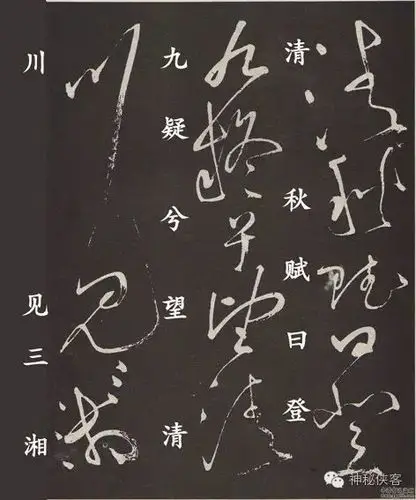 清秋赋曰登
九疑兮望清
川见三湘
神秘侠客